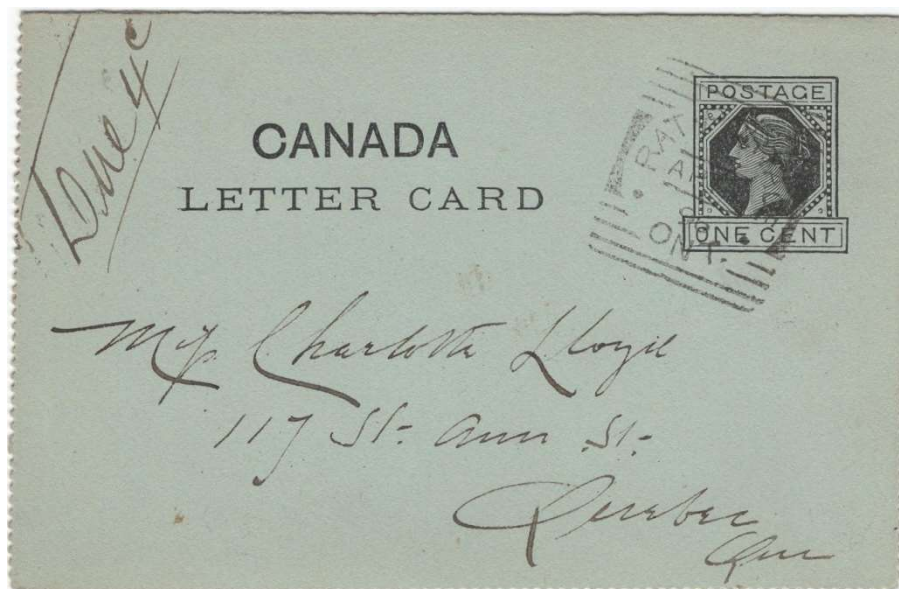 Due 4c
CANADA
LETTER CARD
POSTAGE
ONE CENT
ONT.
Miss Charlotte Lloyd
117 St. Ann St.
Quebec
Que